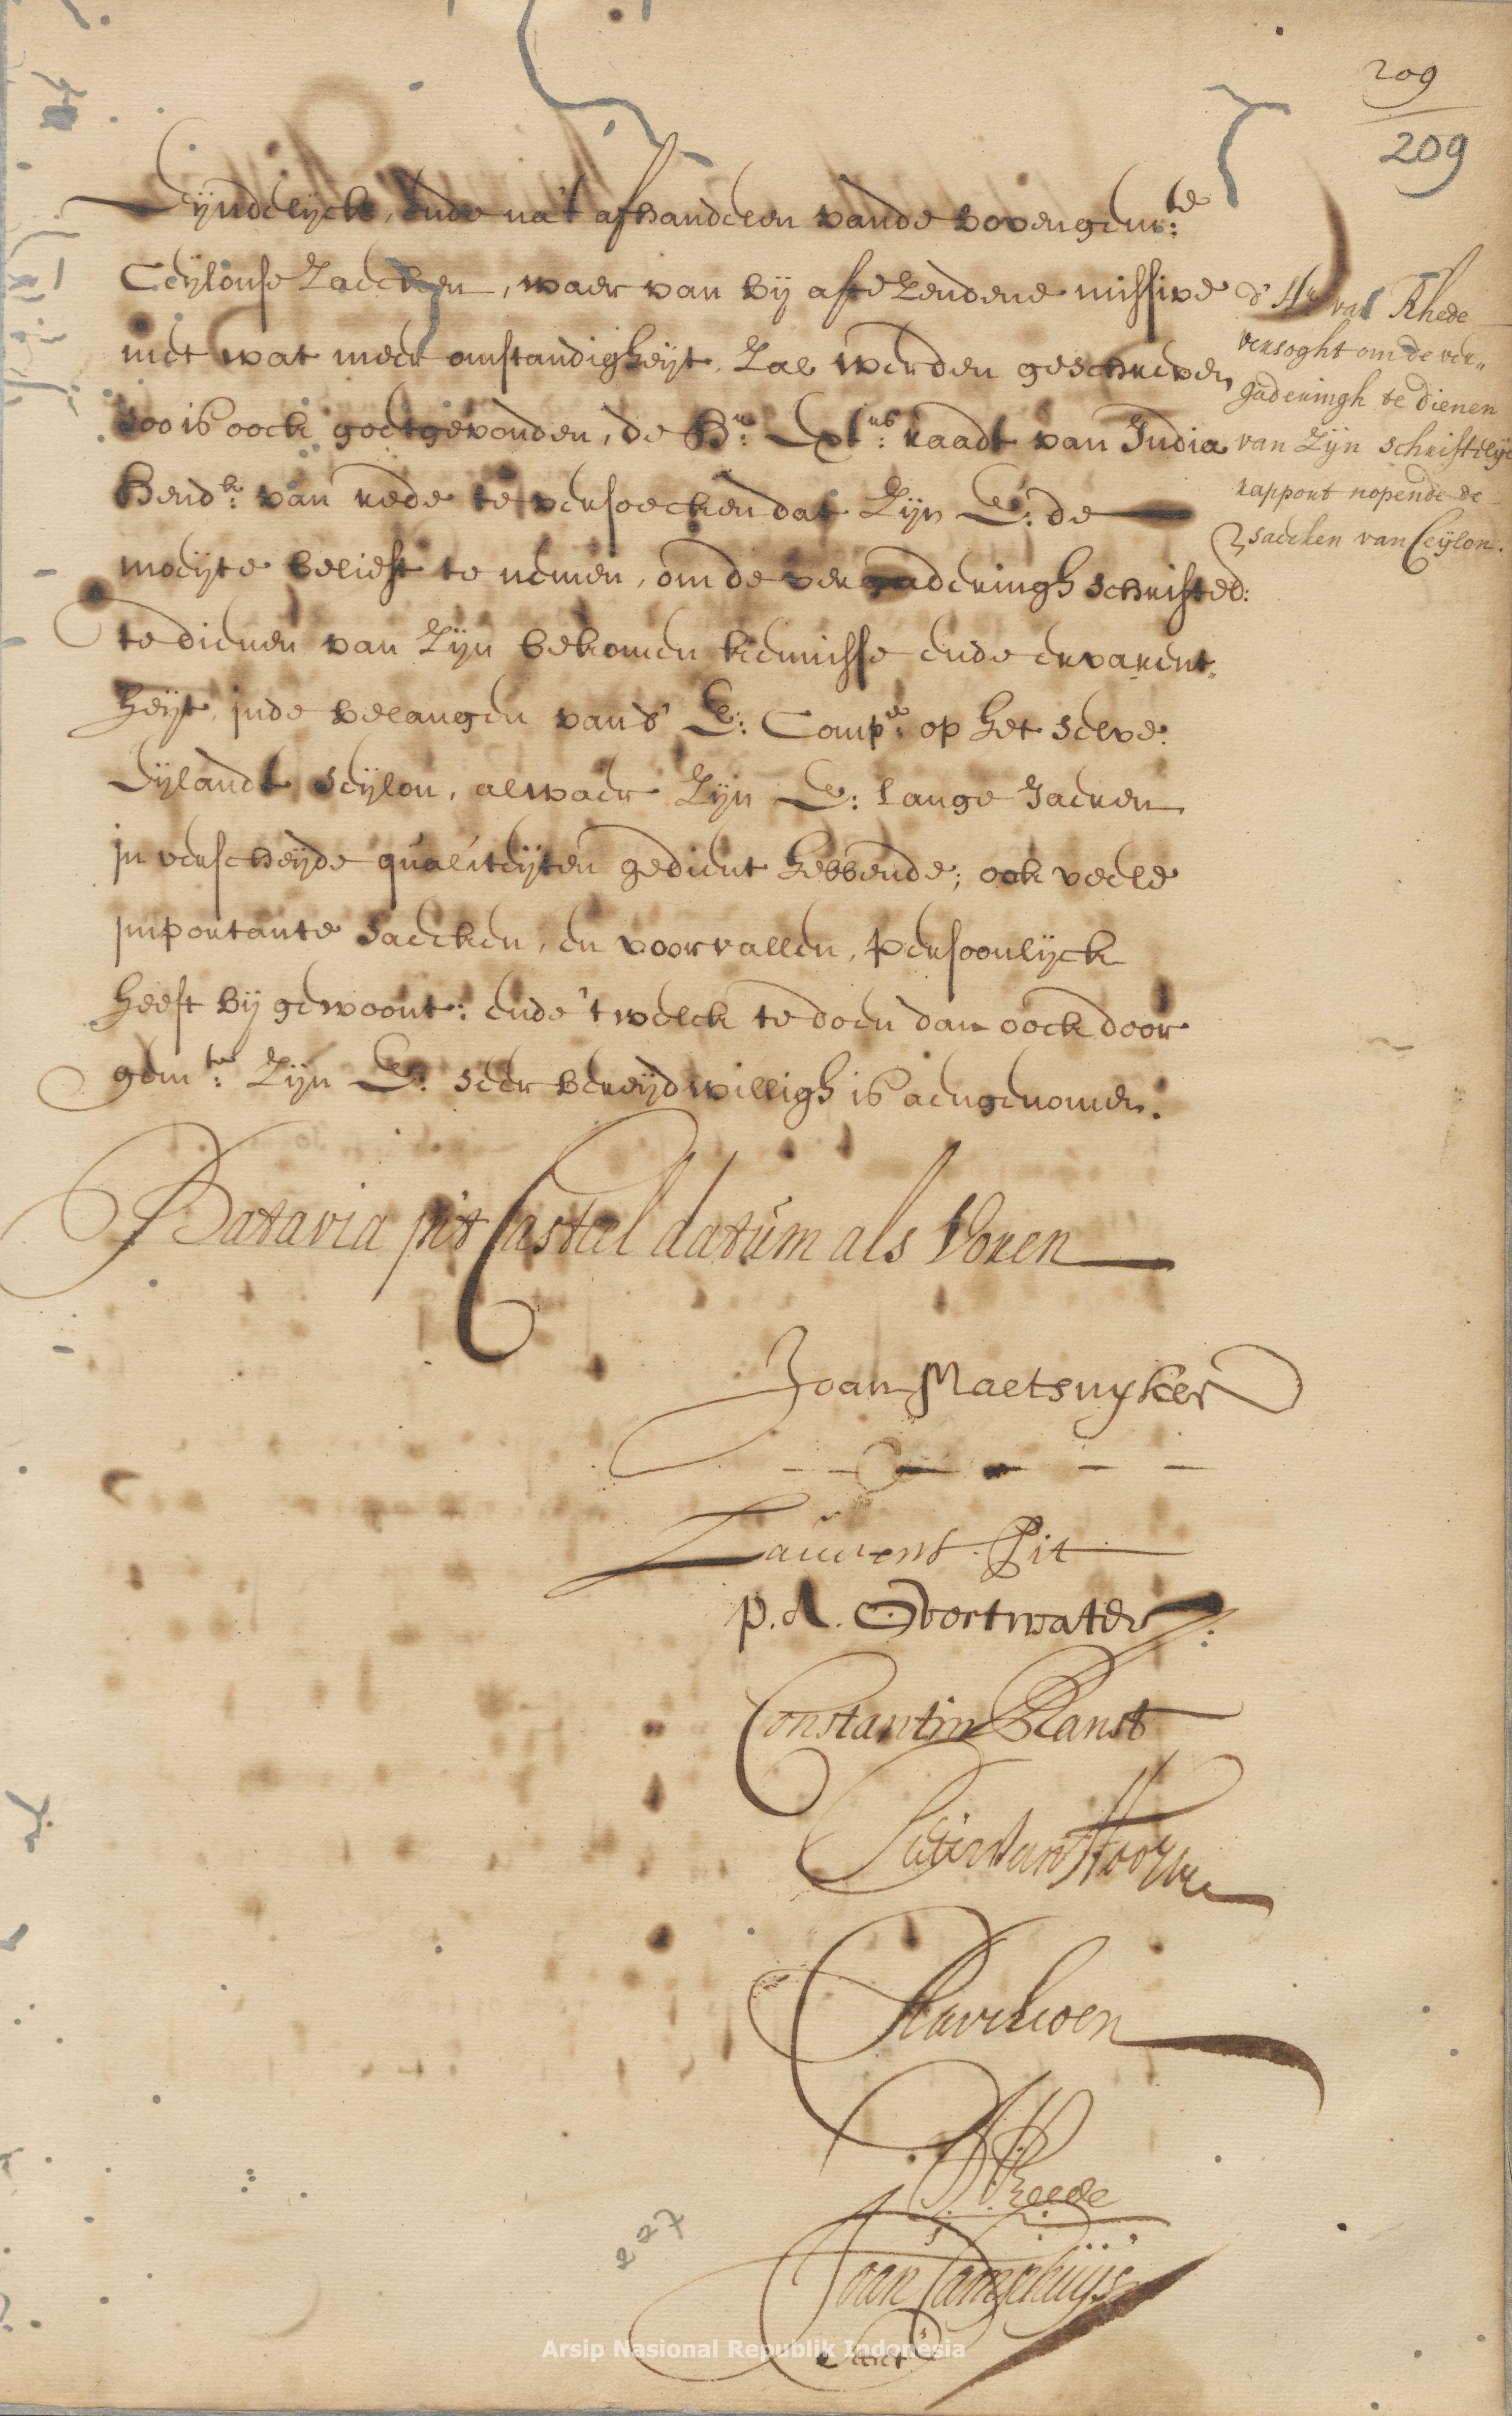 209
209
Eyndelijck, ende na't afhandelen vande bovengem:te
Ceylonse Zaecken, waer van bij afte zendene missive
met wat meer omstandigheyt, zal werden geschreven
soo is oock goetgevonden, de Hr: Extr: raadt van India
Hend:k van rede te versoecken dat Zijn E: de
moeyte belieft te nemen, om de vergaderingh schriftel:
te dienen van Zijn bekomen kennisse ende ervarent„
heyt, inde belangen van d' E: Comp:e op het selve
Eylandt Ceylon, alwaer Zijn E: lange Jaeren
in verscheyde qualiteyten gedient hebbende; ook veele
importante saecken, en voorvallen, persoonlijck
heeft bij gewoont: ende 't welck te doen dan oock door
gem:te Zijn E: seer bereydwilligh is aengenomen.
d' Hr van Rhede
versoght om de ver„
gaderingh te dienen
van Zijn schriftelijk
rapport nopende de
saecken van Ceijlon.
Batavia int Casteel datum als Voren
Joan Maetsuyker
Laurens Pit
P. A. Overtwater
Constantin Ranst
Pieter van Hoorn
Paviljoen
HvReede
Joan Camphuijs
Secrets
227
Arsip Nasional Republik Indonesia